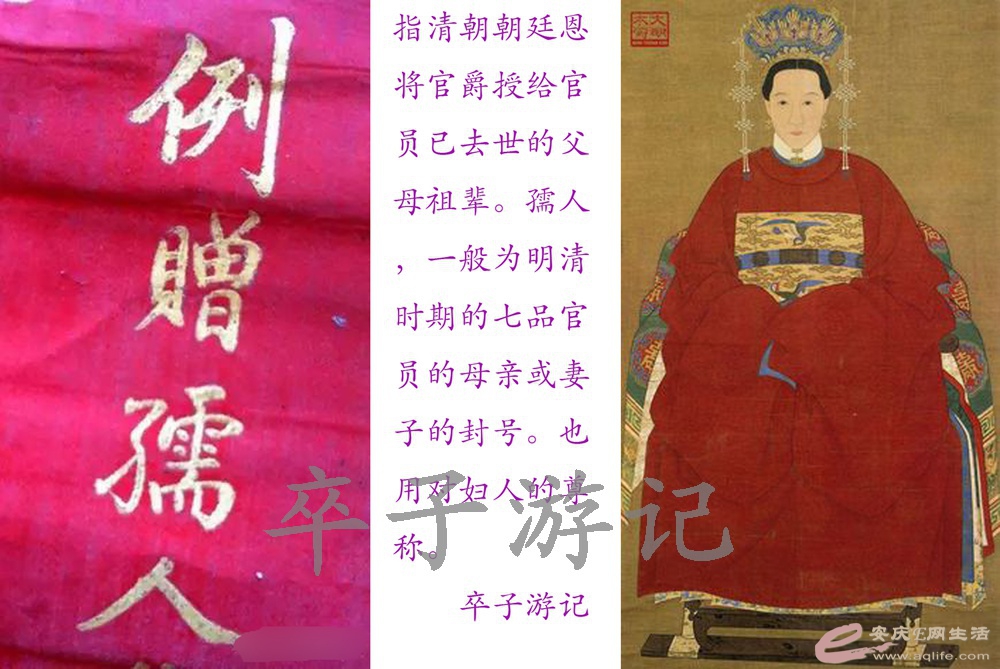 例贈孺人
指清朝朝廷恩
将官爵授给官
员已去世的父
母祖辈。孺人
，一般为明清
时期的七品官
员的母亲或妻
子的封号。也
用对妇人的尊
称。
卒子游记
卒子游记
大明衣冠
安庆E网生活
www.aqlife.com